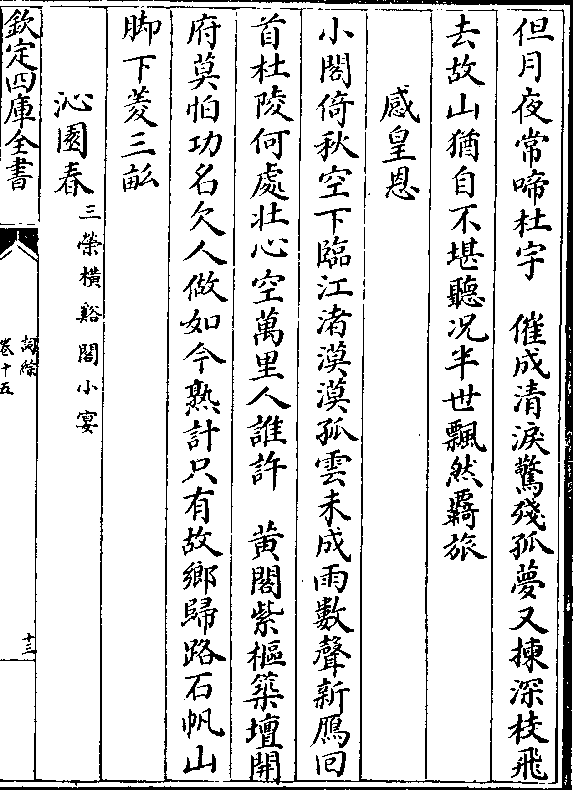 但月夜常啼杜宇　催成清淚驚殘孤夢又揀深枝飛
去故山猶自不堪聽况半世飄然羇旅
感皇恩
小閣倚秋空下臨江渚漠漠孤雲未成雨數聲新鴈回
首杜陵何處壯心空萬里人誰許　黄閣紫樞築壇開
府莫怕功名欠人做如今熟計只有故鄉歸路石帆山
脚下菱三畝
沁園春三榮橫谿閣小宴
欽定四庫全書
詞綜
卷十五
十三